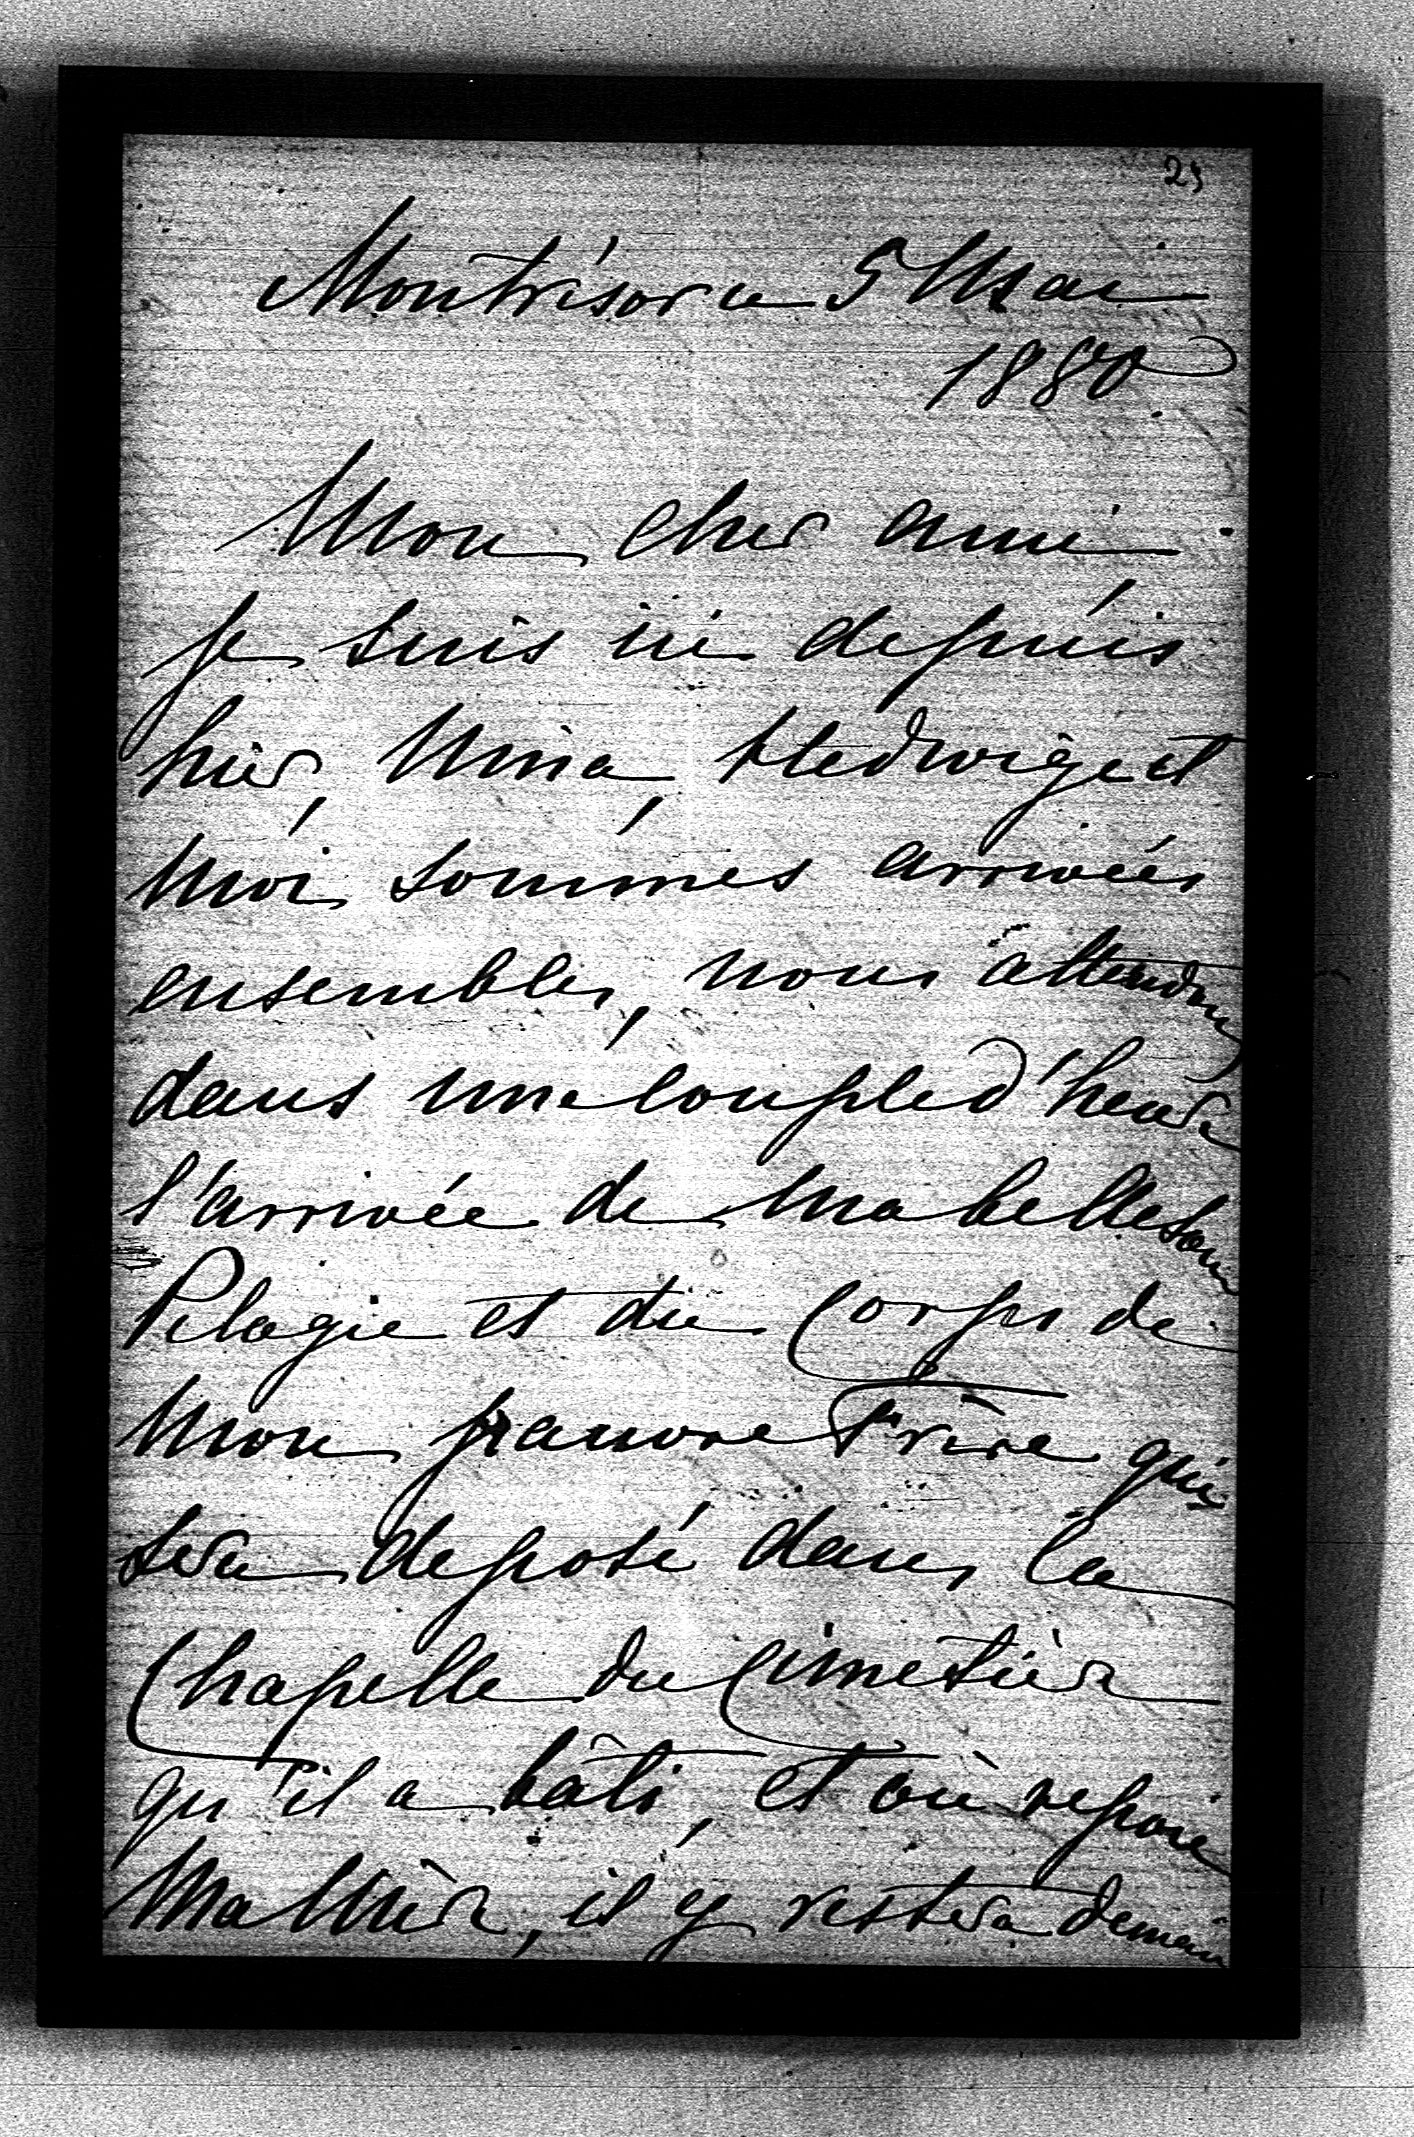 25
Montrésor ce 5 Mai
1880.
Mon cher ami
je suis ici depuis
hier, Mina, Hedwige et
Moi sommes arrivées
ensembles, nous attendons
dans une couple d'heure
l'arrivée de ma belle soeur
Pelagie et du Corps de
Mon pauvre Frère qui
sera deposé dans la
Chapelle du Cimetière
qu'il a bâti, et où repose
Ma Mère, il y restera demain